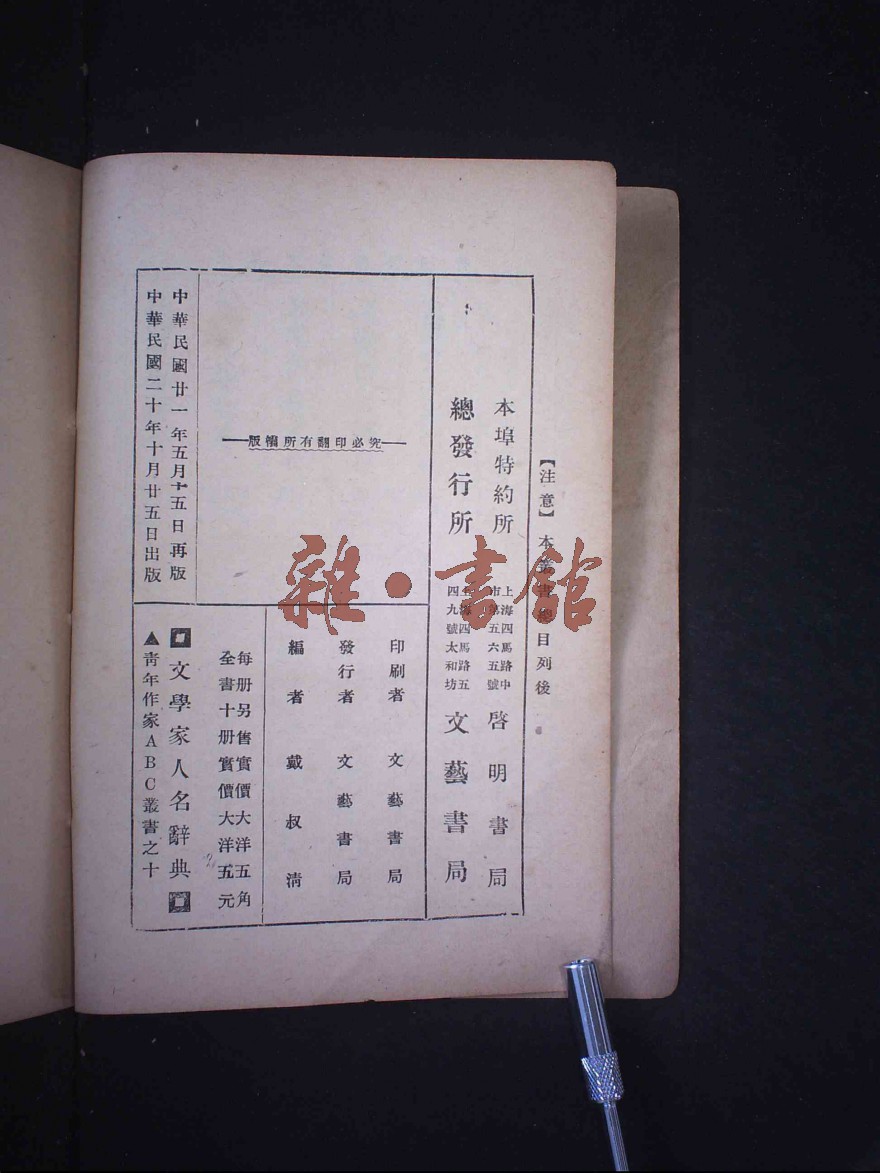 【注意】本叢書總目列後
本埠特約所 上海四馬路中市第五六五號 啓明書局
總發行所 上海四馬路五四九號太和坊 文藝書局
版權所有翻印必究
中華民國廿一年五月十五日再版
中華民國二十年十月廿五日出版
印刷者 文藝書局
發行者 文藝書局
編者 戴叔清
每册另售實價大洋五角
全書十册實價大洋五元
文學家人名辭典
▲青年作家ABC叢書之十
雜·書館